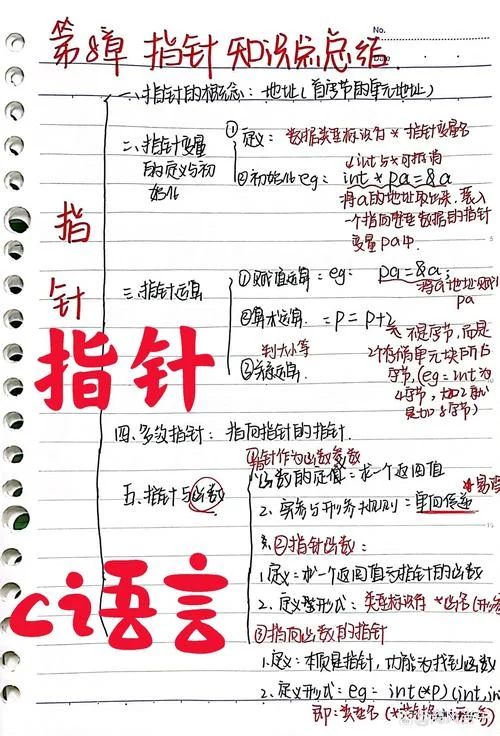 No.
Date
第8章 指针知识点总结.
一、指针的概念:地址(首字节的单元地址)
二、指针变量的定义与初始化
①定义: 数据类型标识符 * 指针变量名
②初始化 eg: int * pa = &a
int与*可抵消
将a的地址取出来,装入
一个指向整型数据的指针
变量pa中.
指针
三、指针运算
①赋值运算: eg: pa = &a;
将a地址赋给
pa
②算术运算: = P = P+2
不是字节,而是
2个存储单元块所占
字节,(eg=int为
4字节,加2就
是加8字节)
判大小等
③关系运算.
指针
四、多级指针: 指向指针的指针.
五、指针与函数
①指针作为函数参数
1.函数的返值:求一个返回值
2. 实参与形参规则:单向传递
★易
②指针函数:
1.定义:求一个返回值为指针的函数
2. 定义整形式: 类型标识符 *函名(形参
c语言
③指向函数的指针
1.定义:本质是指针,功能为找到函数
2. 定义形式: eg= int(*P)(int,in
即:类型名(*指针名)